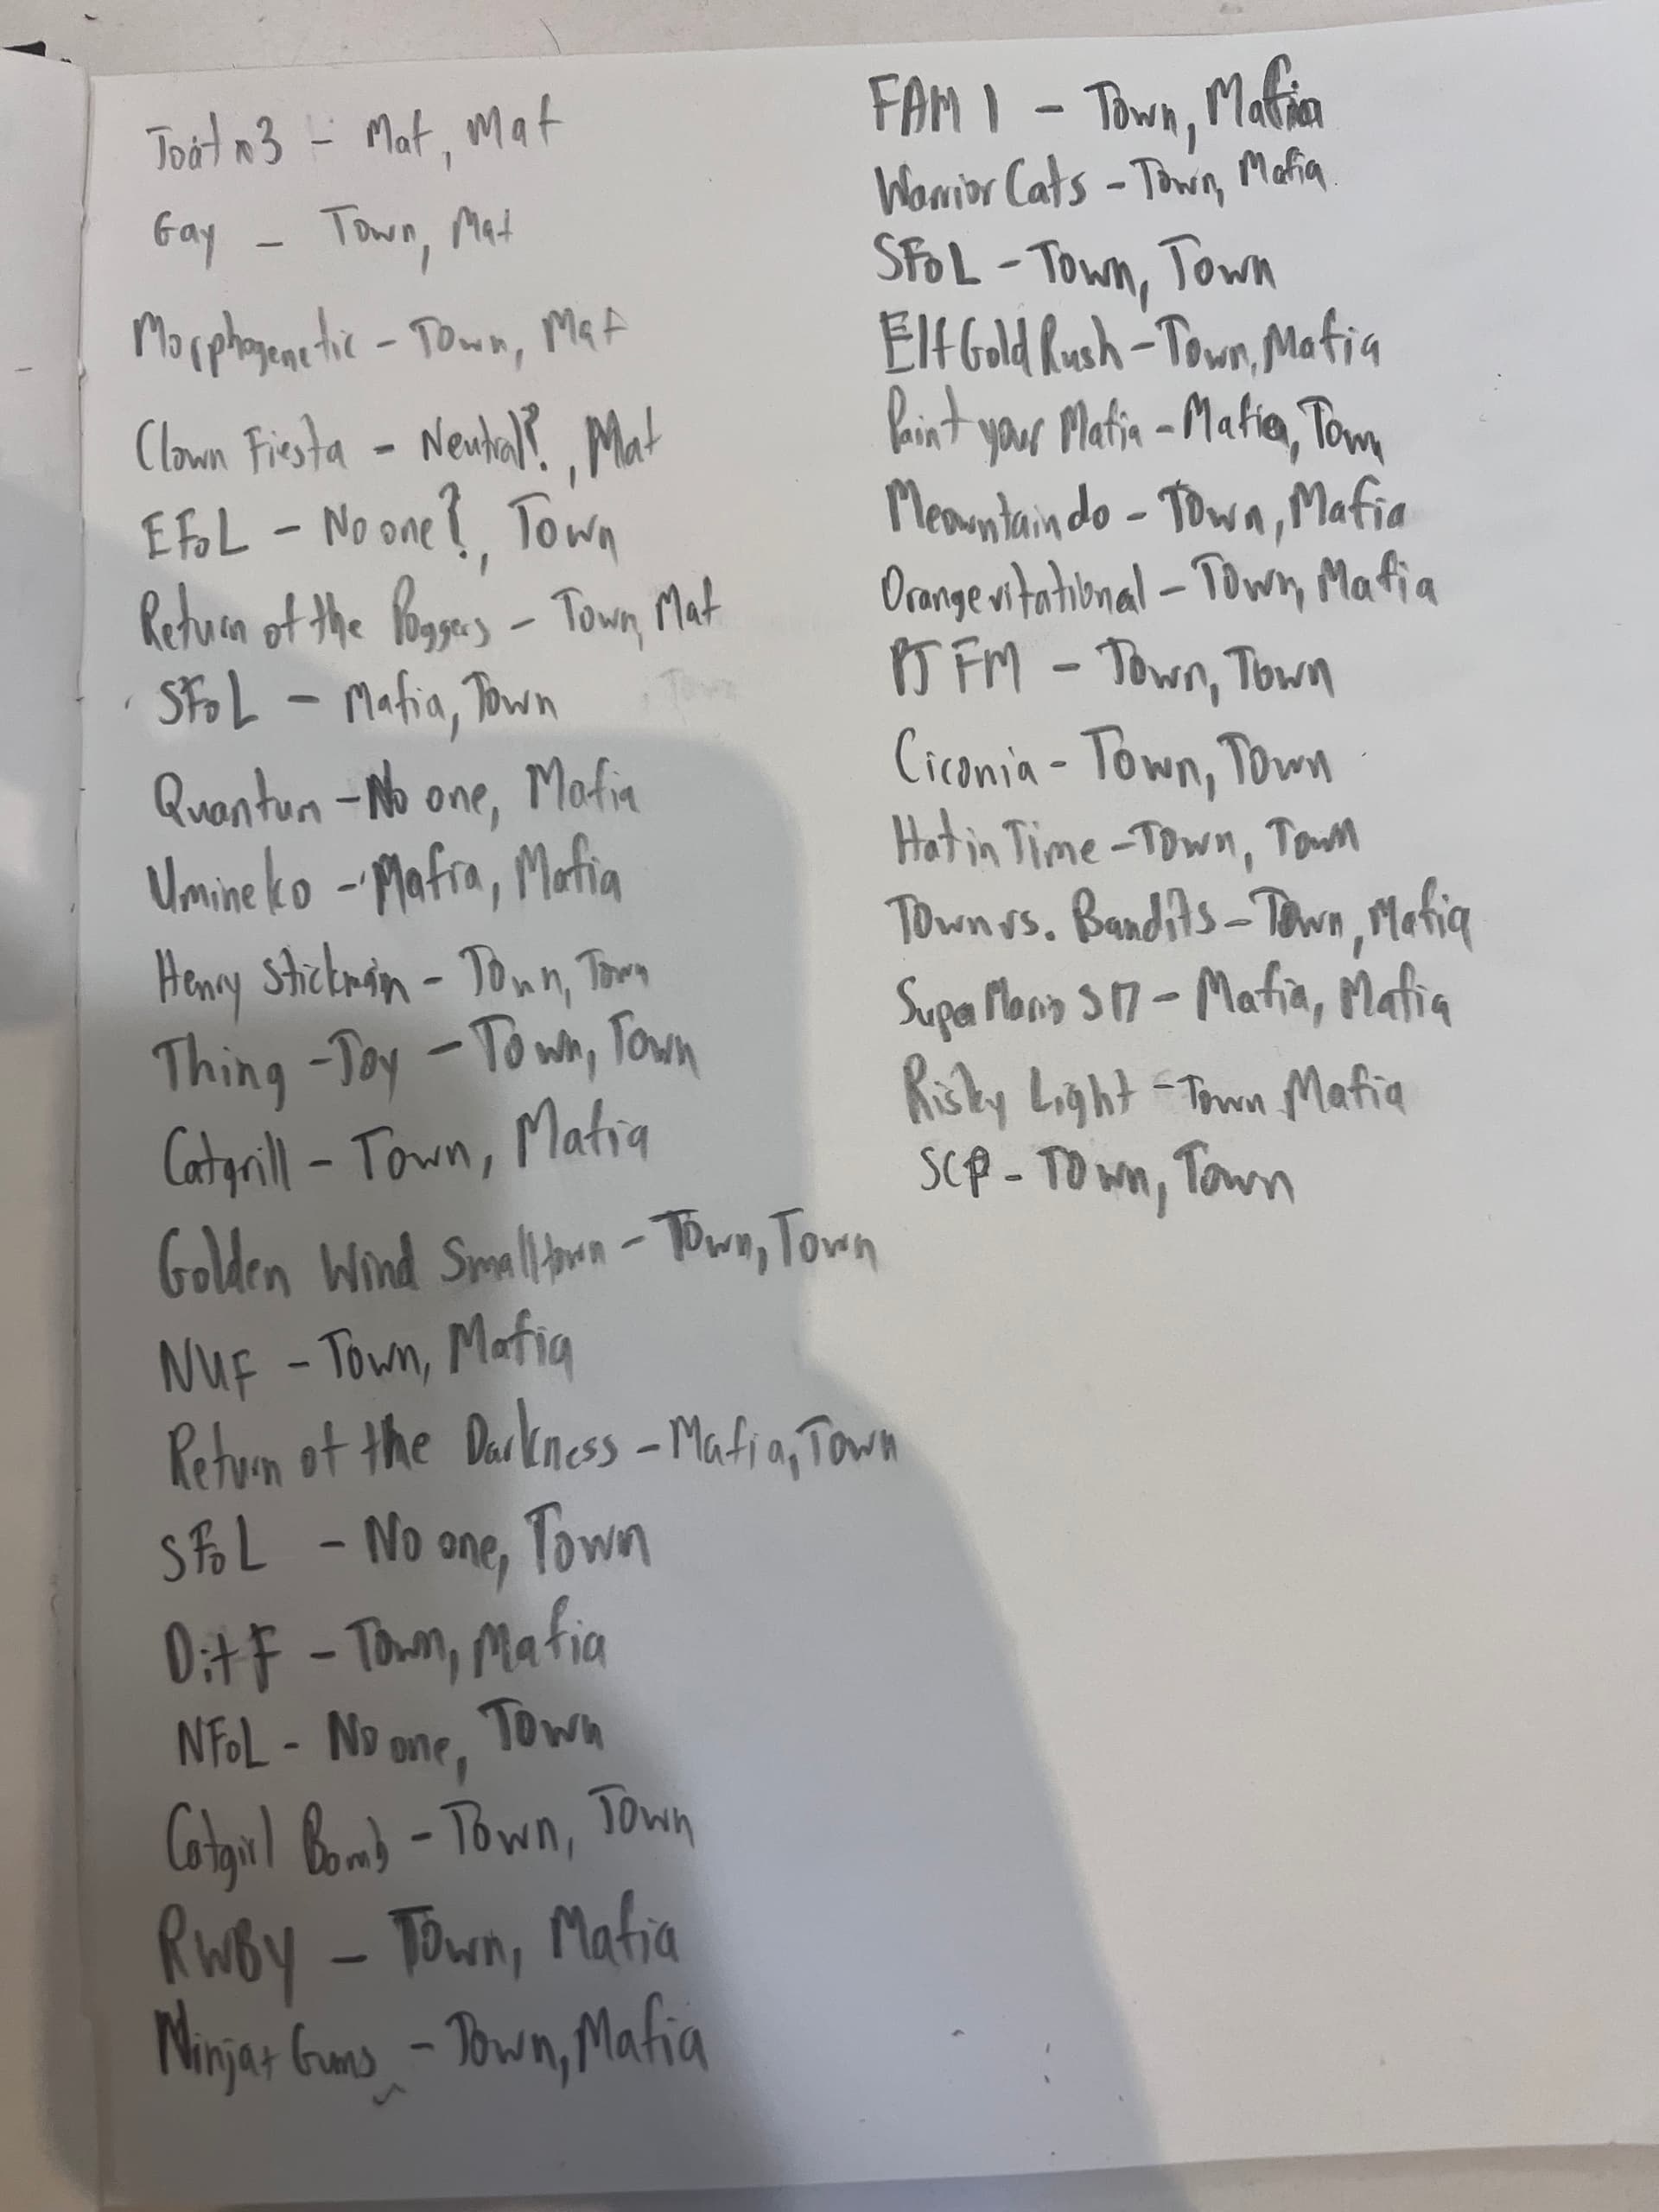 Joat n3 - Maf, Maf
Gay - Town, Maf
Morphogenetic - Town, Maf
Clown Fiesta - Neutral?, Maf
EFoL - No one?, Town
Return of the Poggers - Town, Maf
SFoL - Mafia, Town
Quantum - No one, Mafia
Umineko - Mafia, Mafia
Henry Stickmin - Town, Town
Thing - Joy - Town, Town
Catgrill - Town, Mafia
Golden Wind Smalltown - Town, Town
NUF - Town, Mafia
Return of the Darkness - Mafia, Town
SFoL - No one, Town
DitF - Town, Mafia
NFoL - No one, Town
Catgirl Bomb - Town, Town
RWBY - Town, Mafia
Ninja + Guns - Town, Mafia
FAM 1 - Town, Mafia
Warrior Cats - Town, Mafia
SFoL - Town, Town
Elf Gold Rush - Town, Mafia
Paint your Mafia - Mafia, Town
Meowntaindo - Town, Mafia
Orangevitational - Town, Mafia
PJ FM - Town, Town
Ciconia - Town, Town
Hat in Time - Town, Town
Town vs. Bandits - Town, Mafia
Super Mario - Mafia, Mafia
Risky Light - Town Mafia
SCP - Town, Town